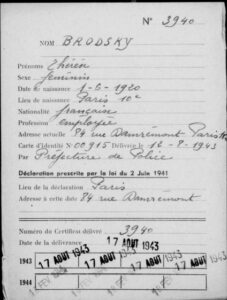 N° 3940
NOM BRODSKY
Prénoms Thérèse
Sexe féminin
Date de naissance 1-6-1920
Lieu de naissance Paris 10e
Nationalité française
Profession employée
Adresse actuelle 84 rue Damremont Paris
Carte d'Identité N° 00915 Délivrée le 16-8-1943
Par Préfecture de Police
Déclaration prescrite par la loi du 2 Juin 1941
Lieu de la déclaration Paris
Adresse à cette date 84 rue Damremont
Numéro du Certificat délivré 3940
Date de la délivrance 17 AOUT 1943
1943 17 AOUT 1943 17 AOUT 1943
1944